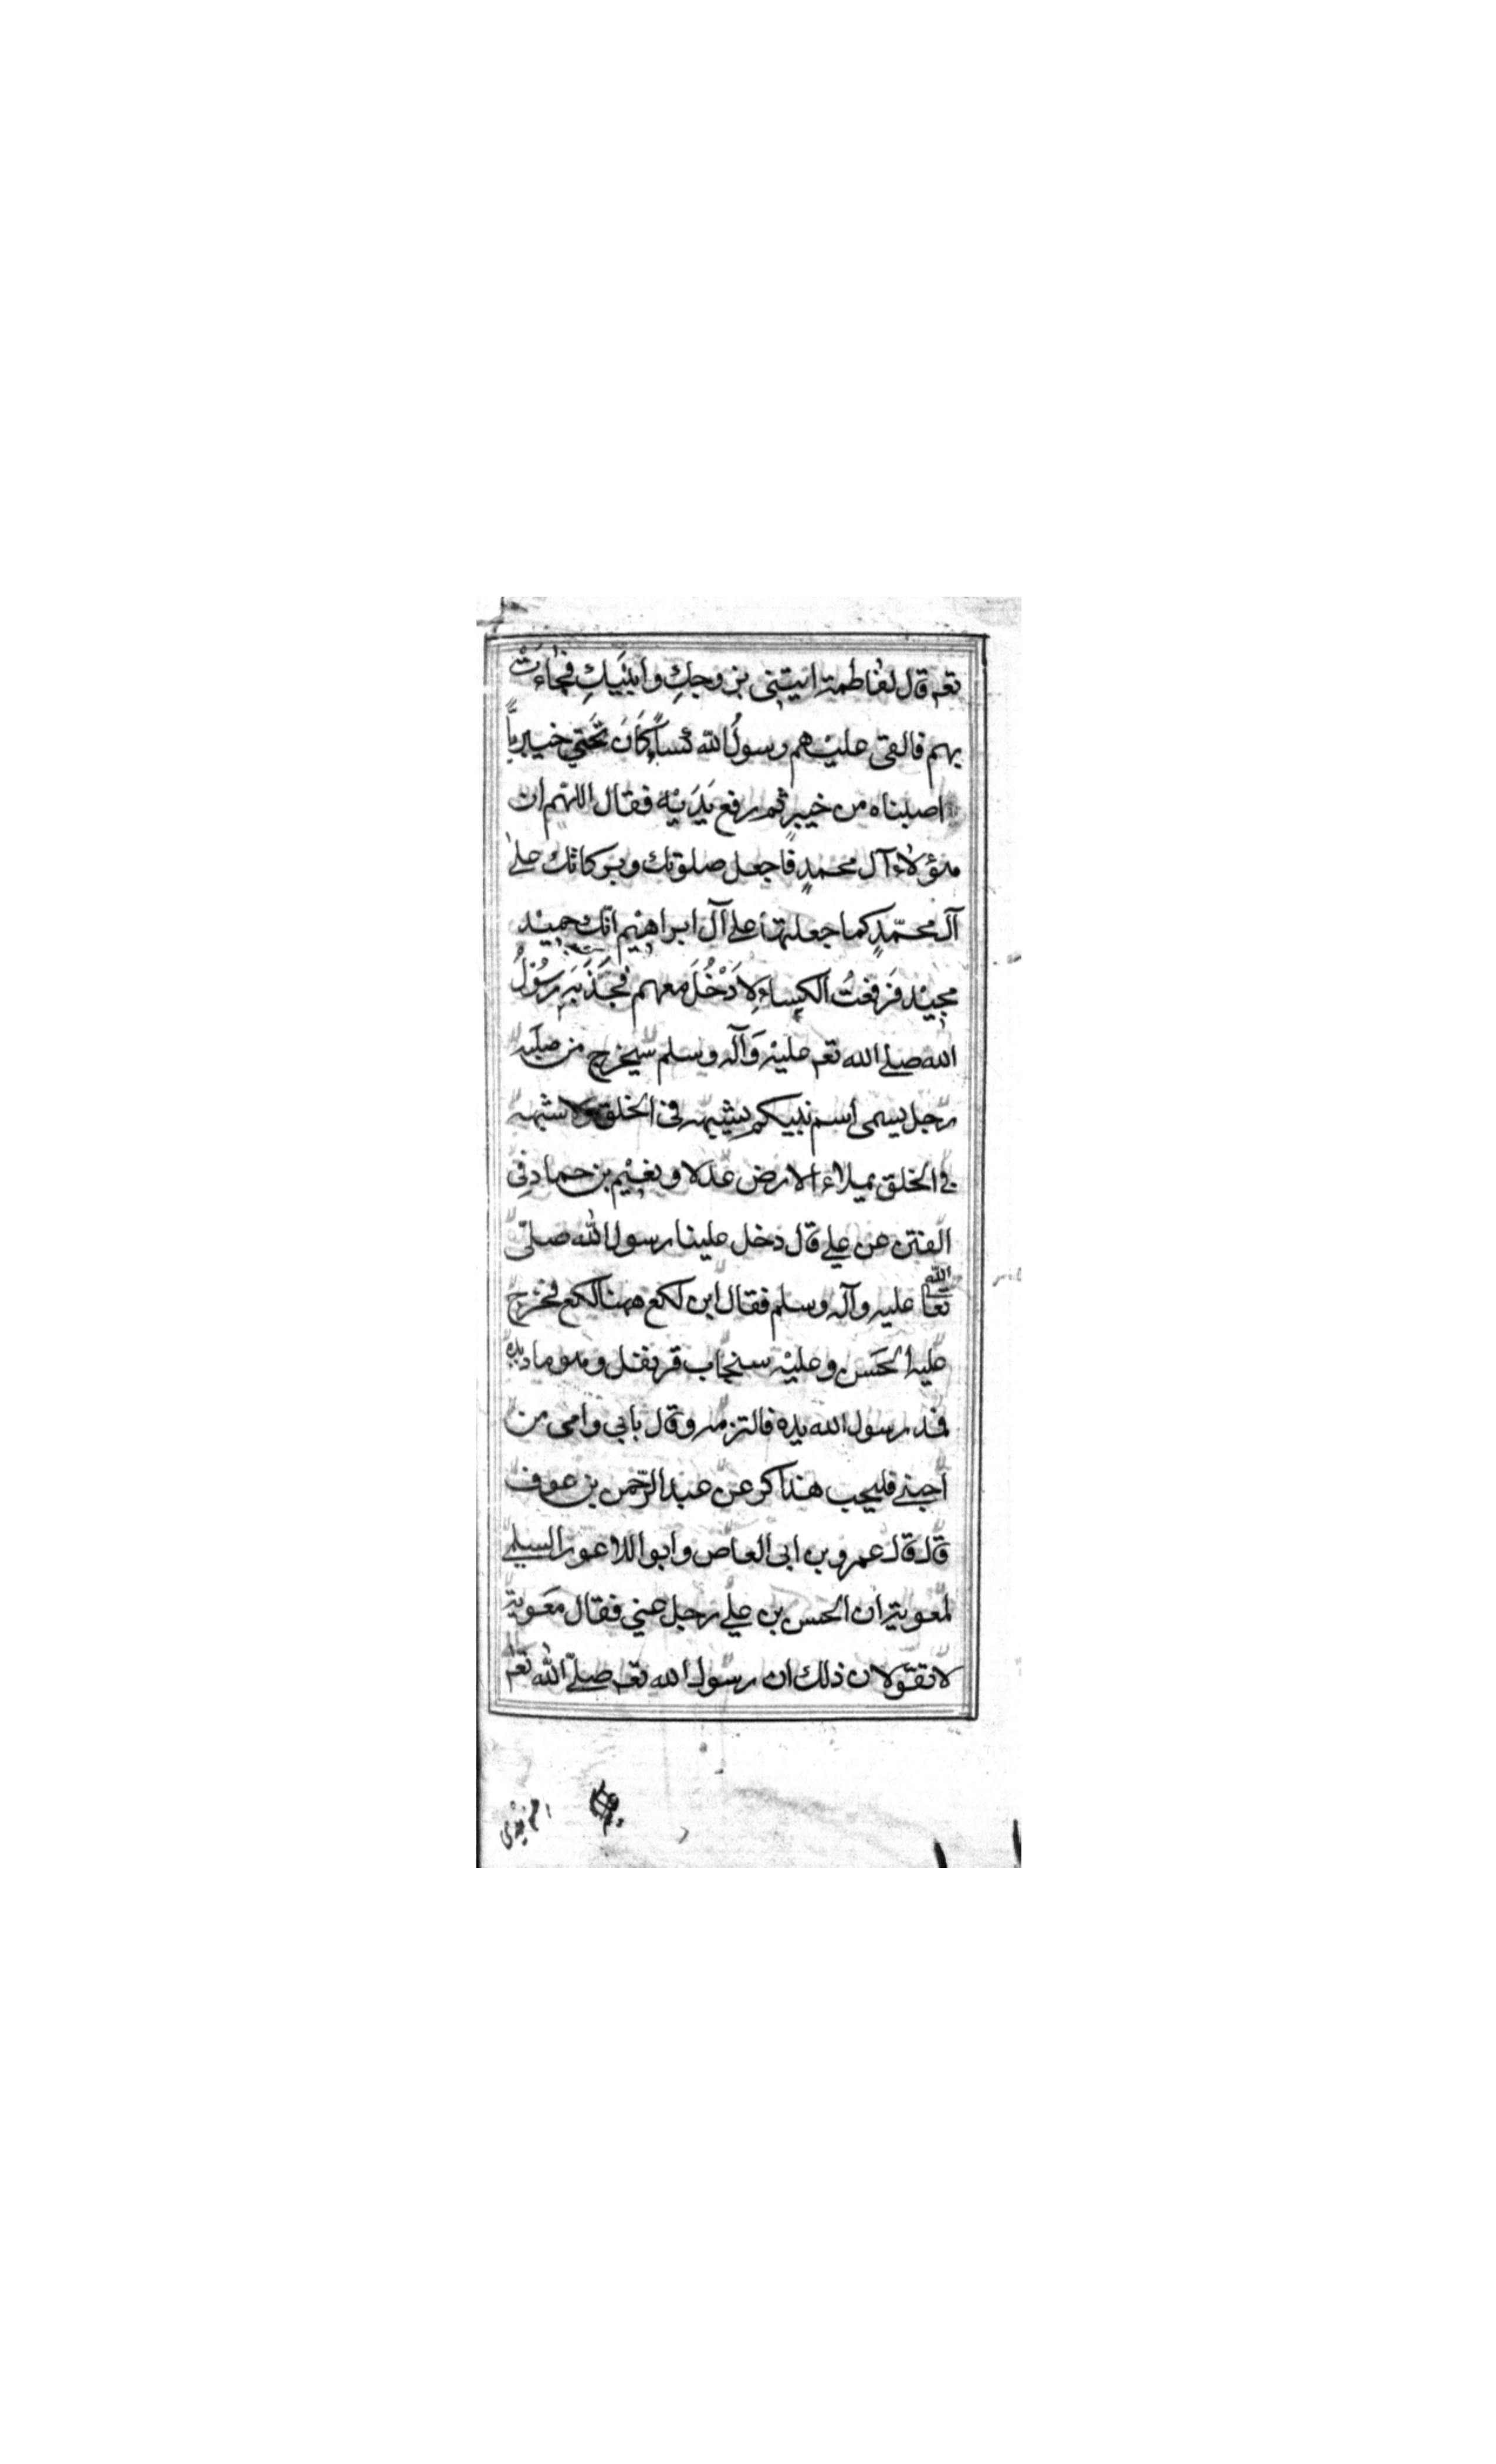 تعم قال لفاطمة ايتيني بزوجكِ وابنَيكِ فجاءَتْ
بهم فالقى عليهم رسولُ الله كساءً كَانَ تَحتي خيبريًّا
اصبناه من خيبر ثم رفع يَدَيْه فقال اللهم ان
هؤلاء آل محمدٍ فاجعل صلوتك وبركاتك على
آل محمّدٍ كما جعلتها على آل ابراهيم انّك حميد
مجيد فَرفعتُ الكِساء لِاَدْخُلَ معهم فجَذَبَه رَسُوْلُ
الله صلے الله تعم عليه وَآله وسلم سيخرج من صلبه
رجل يسمى اسم نبيكم يشبهه في الخلق ولا يشبهه
في الخلق يملاء الارض عدلا و نعيم بن حماد في
الفتن عن علي قال دخل علينا رسول الله صلّى
الله تعا عليه وآله وسلم فقال اين لكع ههنا لكع فخرج
عليه الحَسن وعليه سنحاب قرنفل وهو ماد يده
فمد رسول الله يده فالتزمه وقال بابي وامي من
احبني فليحب هذا كر عن عبد الرّحمن بن عوف
قال قال عمرو بن ابى العاص وابو اللاعور السلمي
لمعوية ان الحسن بن علي رجل عيني فقال معوية
لا تقولان ذلك ان رسول الله تعم صلّى الله تعم